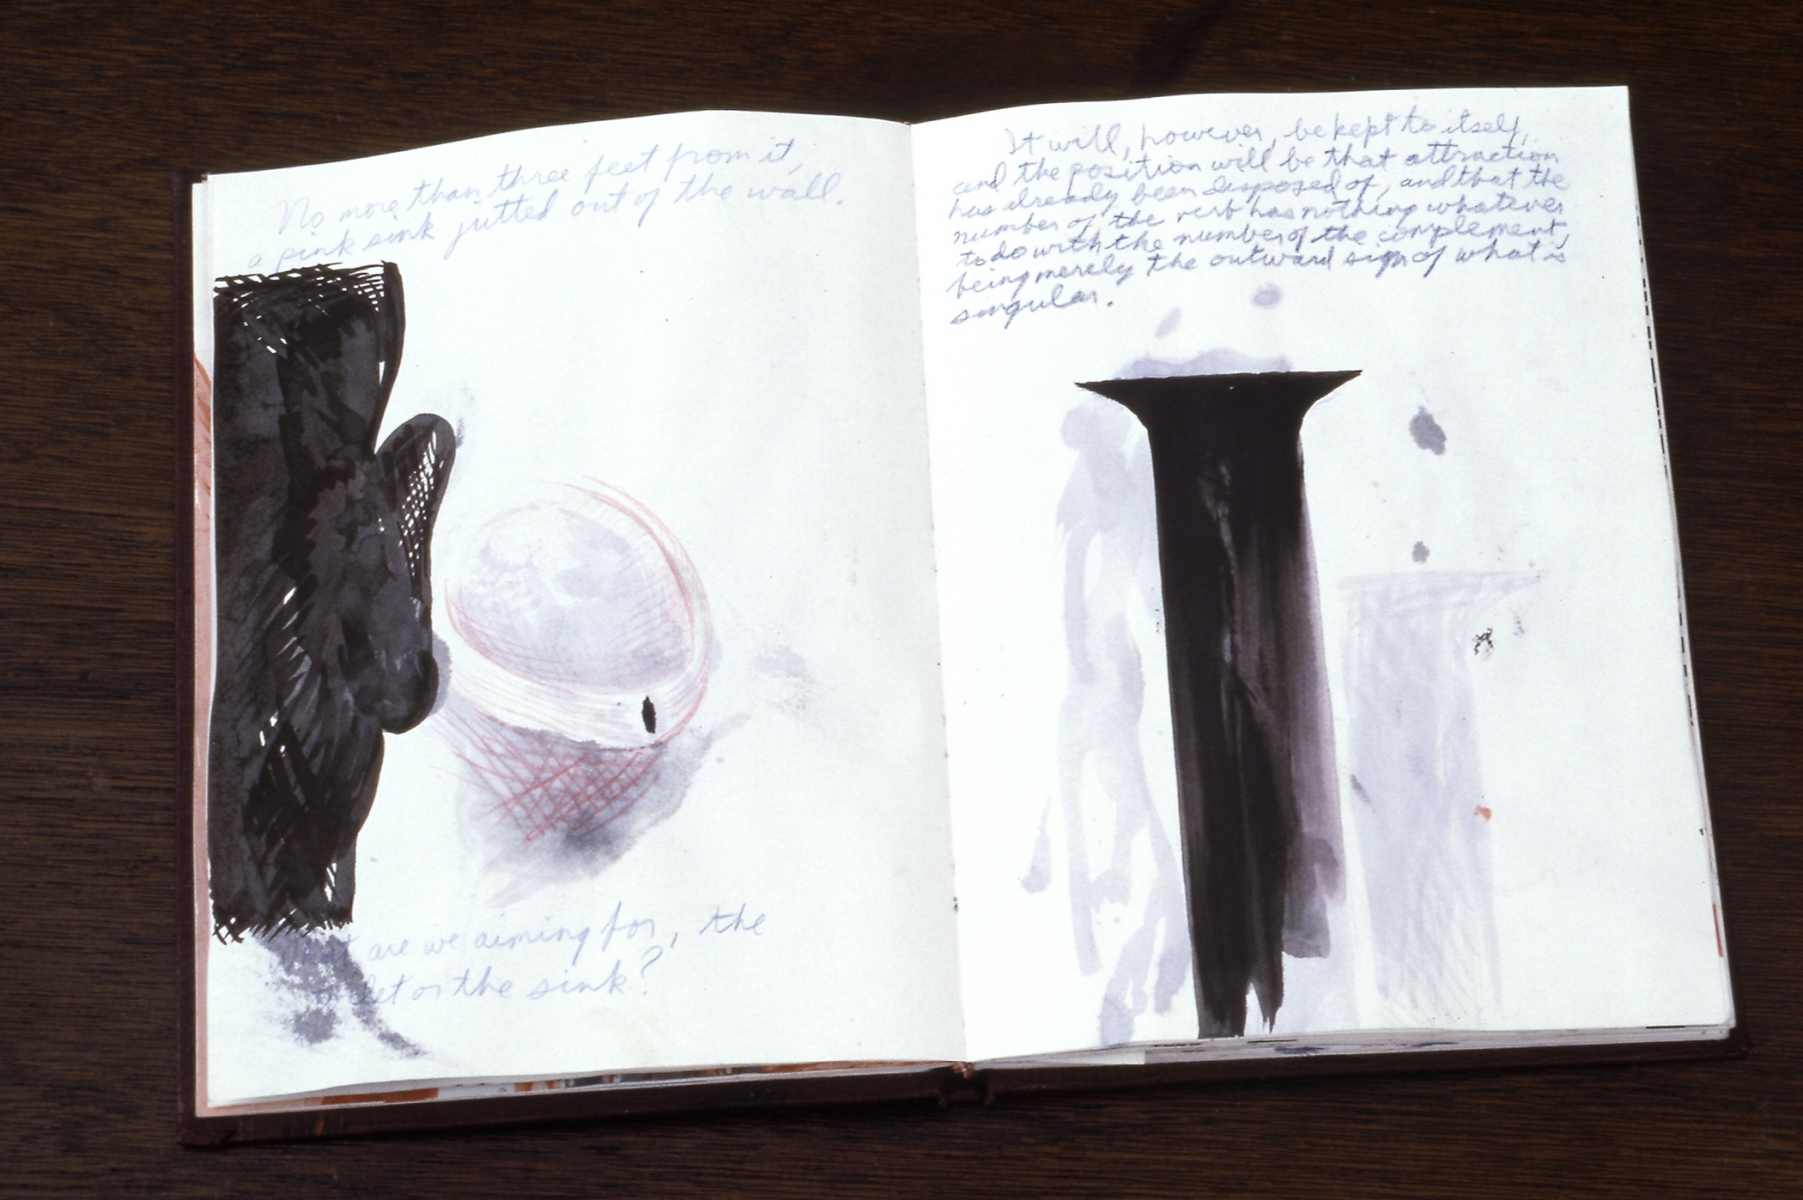 No more than three feet from it,
a pink sink jutted out of the wall.
are we aiming for, the
or the sink?
It will, however, be kept to itself,
and the position will be that attraction
has already been disposed of, and that the
number of the verb has nothing whatever
to do with the number of the complement,
being merely the outward sign of what is
singular.